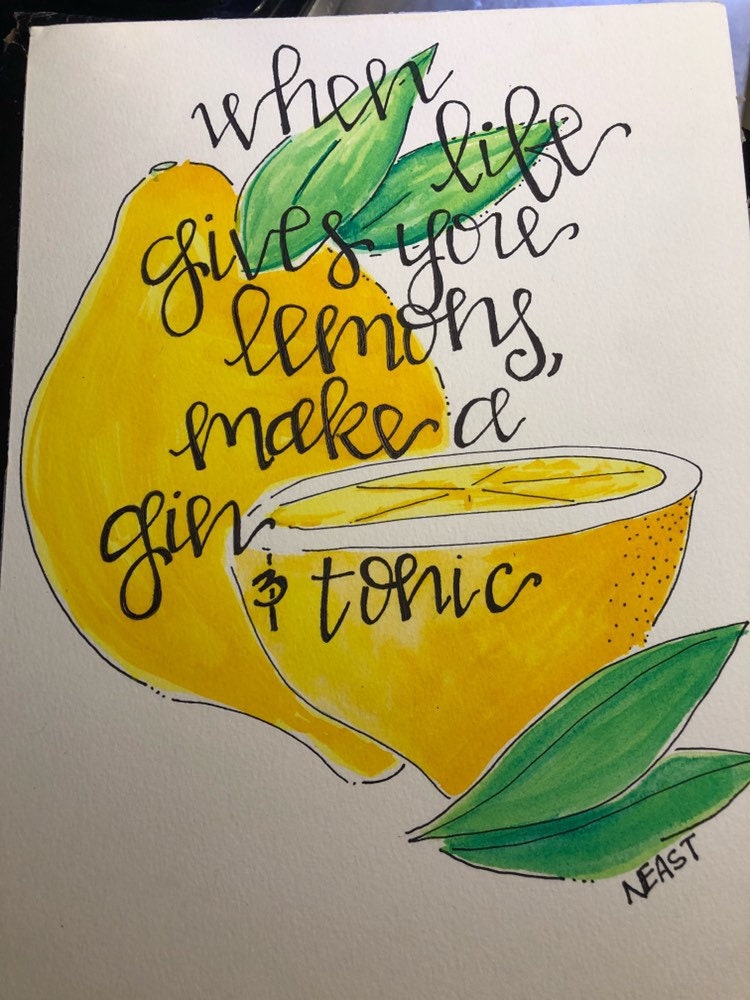 when
life
gives you
lemons,
make a
gin
& tonic
NEAST